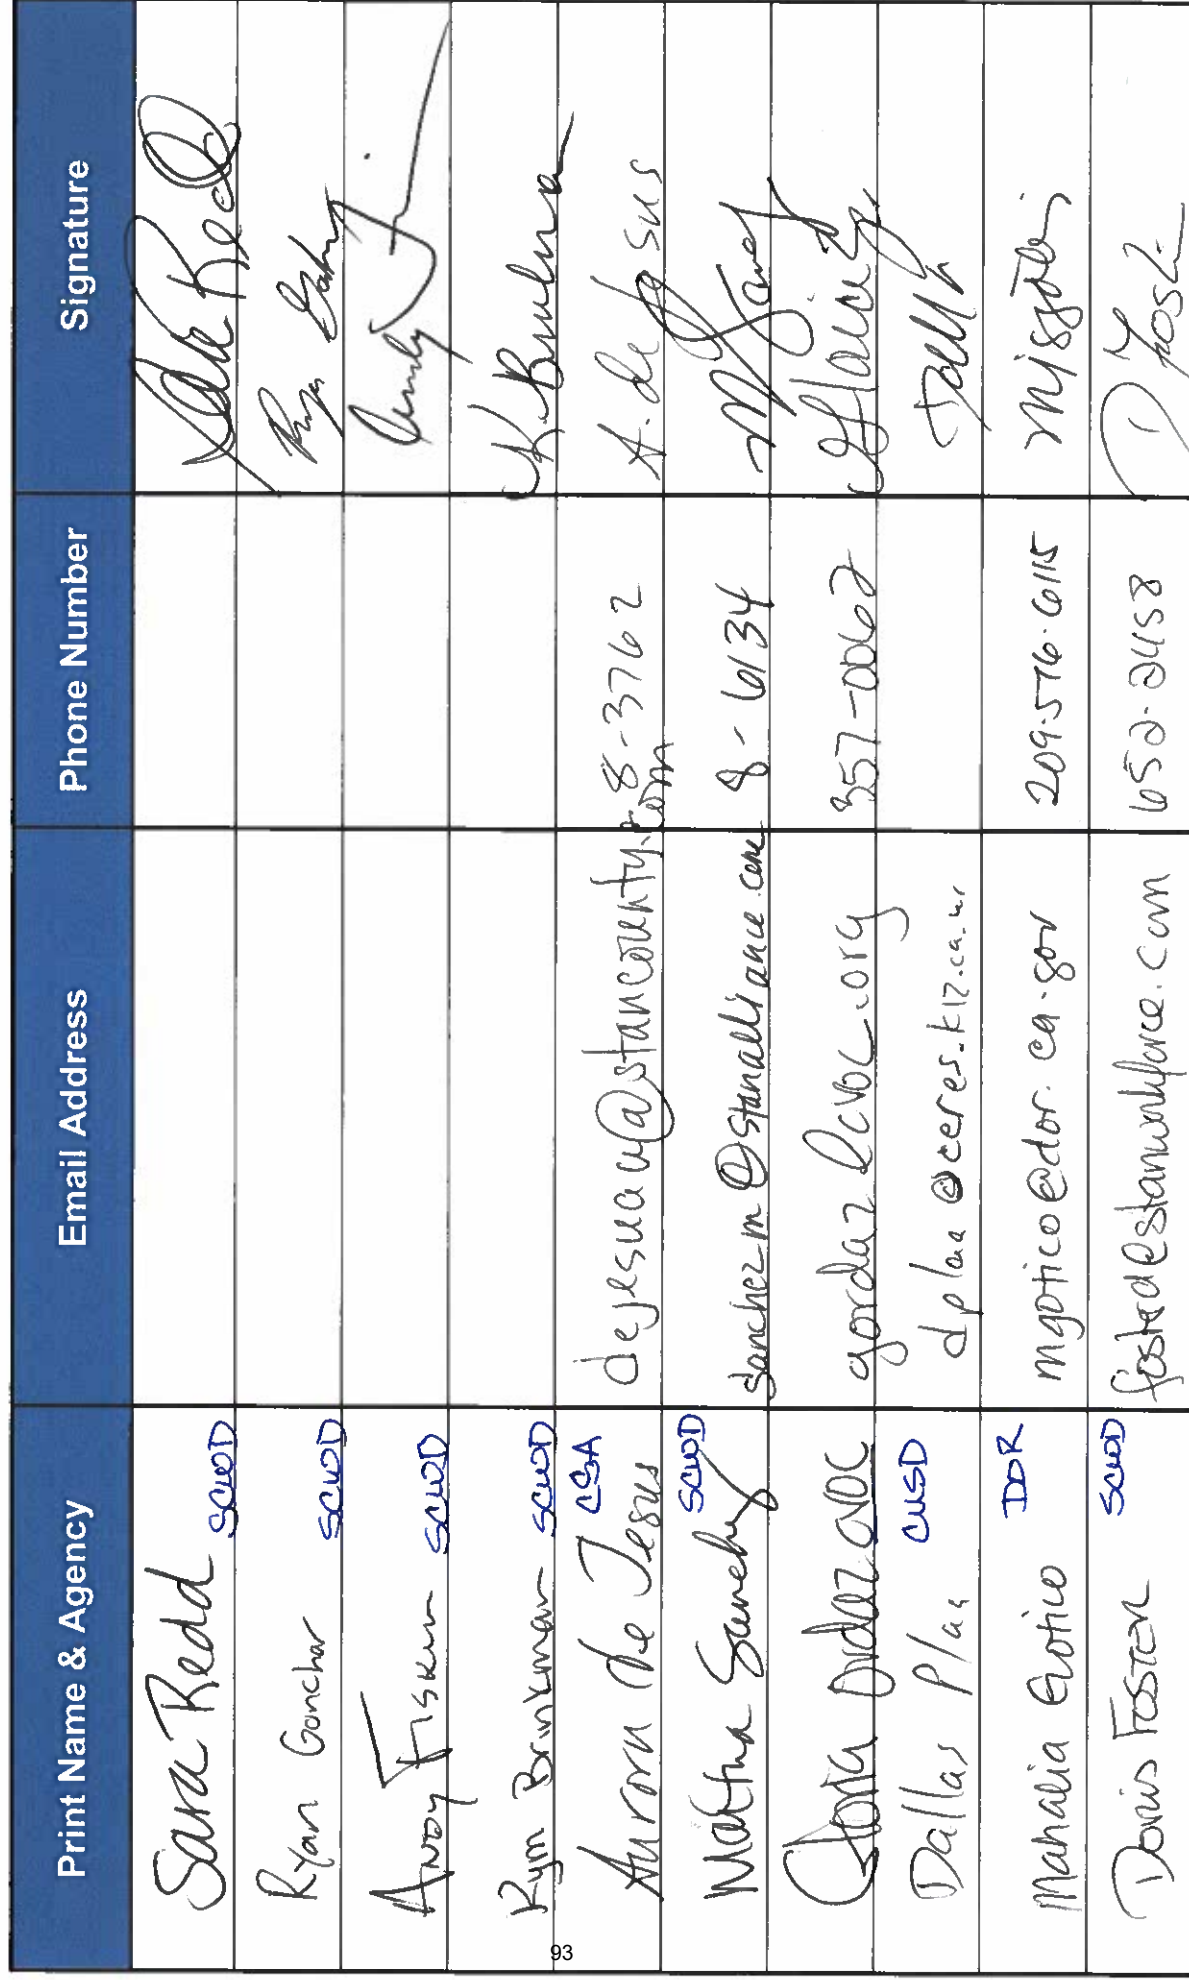 Print Name & Agency Email Address Phone Number Signature
Sara Redd SCWD
Ryan Gonchar SCWD
Andy Fiskum SCWD
Kym Brinkman SCWD K. Brinkman
Aurora De Jesus CSA dejesua@stancounty.com 8-3762 A. de Jesus
Martha Sanchez SCWD sanchezm@stanalliance.com 8-6134
Gloria Ordaz CVOC gordaz@cvoc.org 357-0062
Dallas Plaa CUSD dplaa@ceres.k12.ca.us
Mahalia Gotico DOR mgotico@dor.ca.gov 209.576.6115
Doris Foster SCWD fosterd@stanworkforce.com 652-2458
93